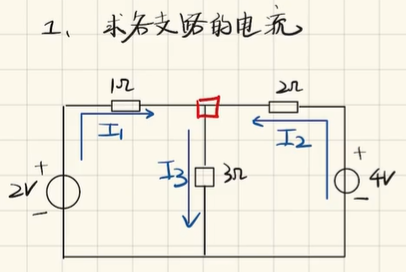 1、求各支路的电流
1Ω
2Ω
I₁
I₂
I₃
3Ω
+
2V
-
+
4V
-